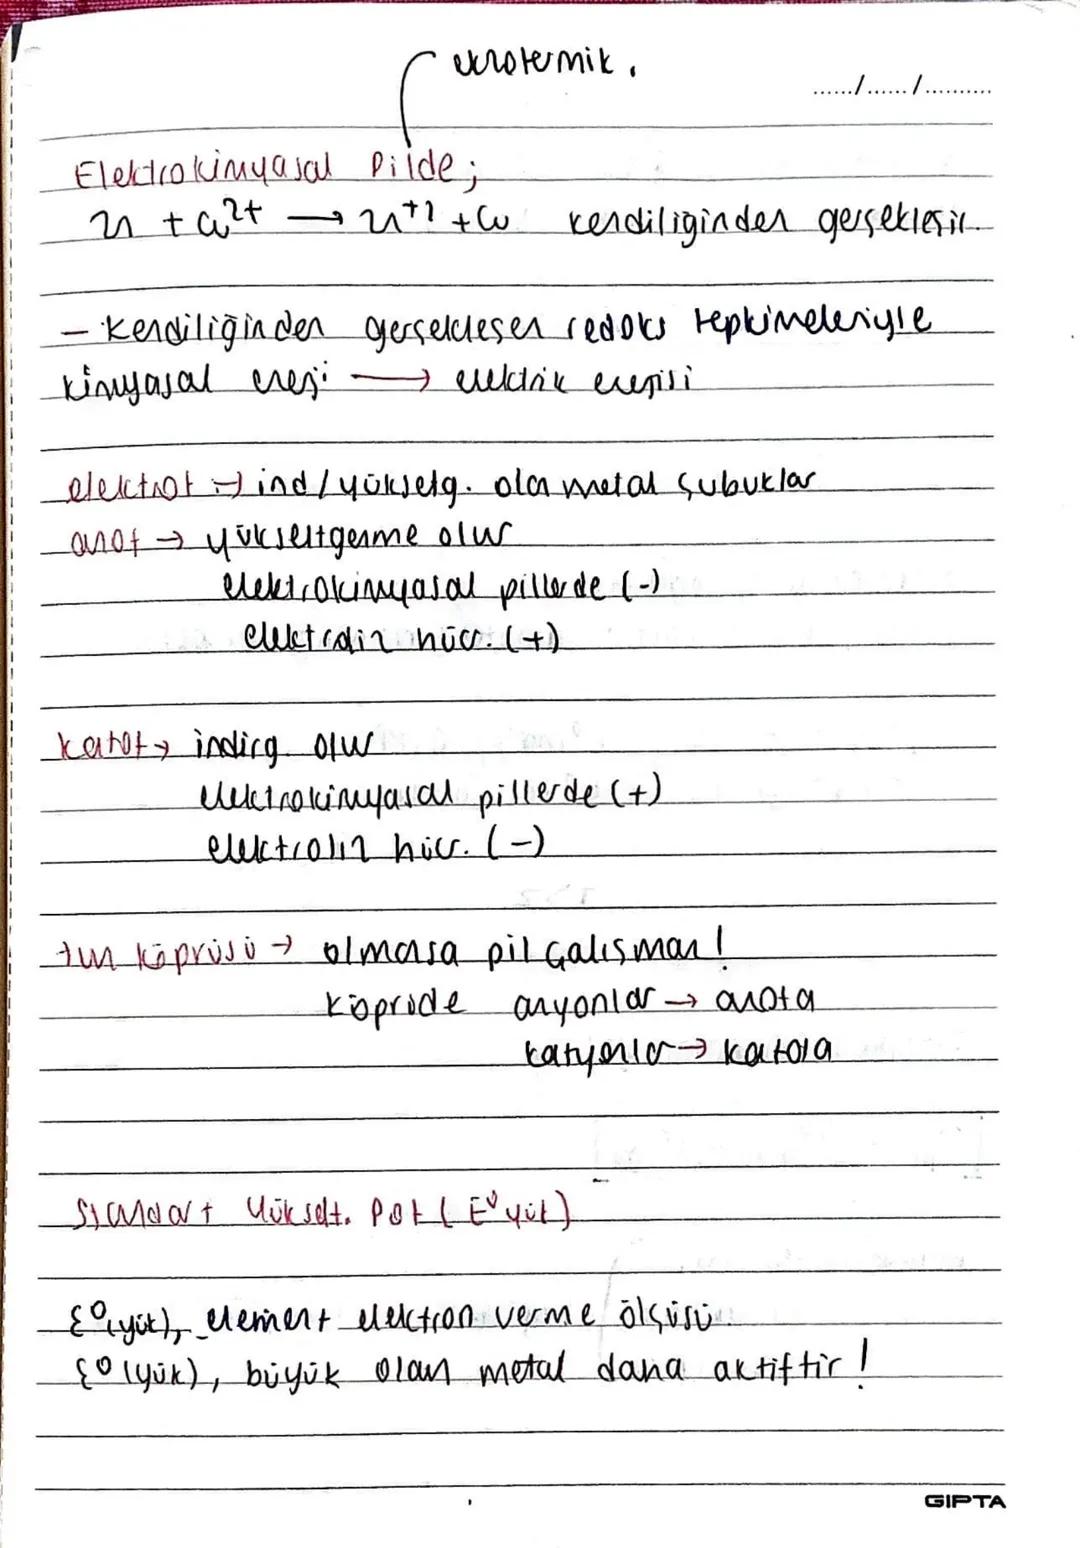 ekzotermik.
....../....../..........
Elektrokimyasal Pilde;
Zn + Cu²⁺ → Zn⁺² + Cu kendiliginden gerçekleşir.
- Kendiliğinden gerçekleşen redoks tepkimeleriyle
kimyasal enerji → elektrik enerjisi
elektrot → ind/yükseltg. olan metal çubuklar
anot → yükseltgenme olur
elektrokimyasal pillerde (-)
elektroliz hüc. (+)
katot → indirg. olur
elektrokimyasal pillerde (+)
elektroliz hüc. (-)
tuz köprüsü → olmasa pil çalışmaz!
köprüde anyonlar → anota
katyonlar → katota
Standart Yükselt. Pot (E⁰yük)
E⁰(yük), element elektron verme ölçüsü.
E⁰(yük), büyük olan metal daha aktiftir!
GIPTA